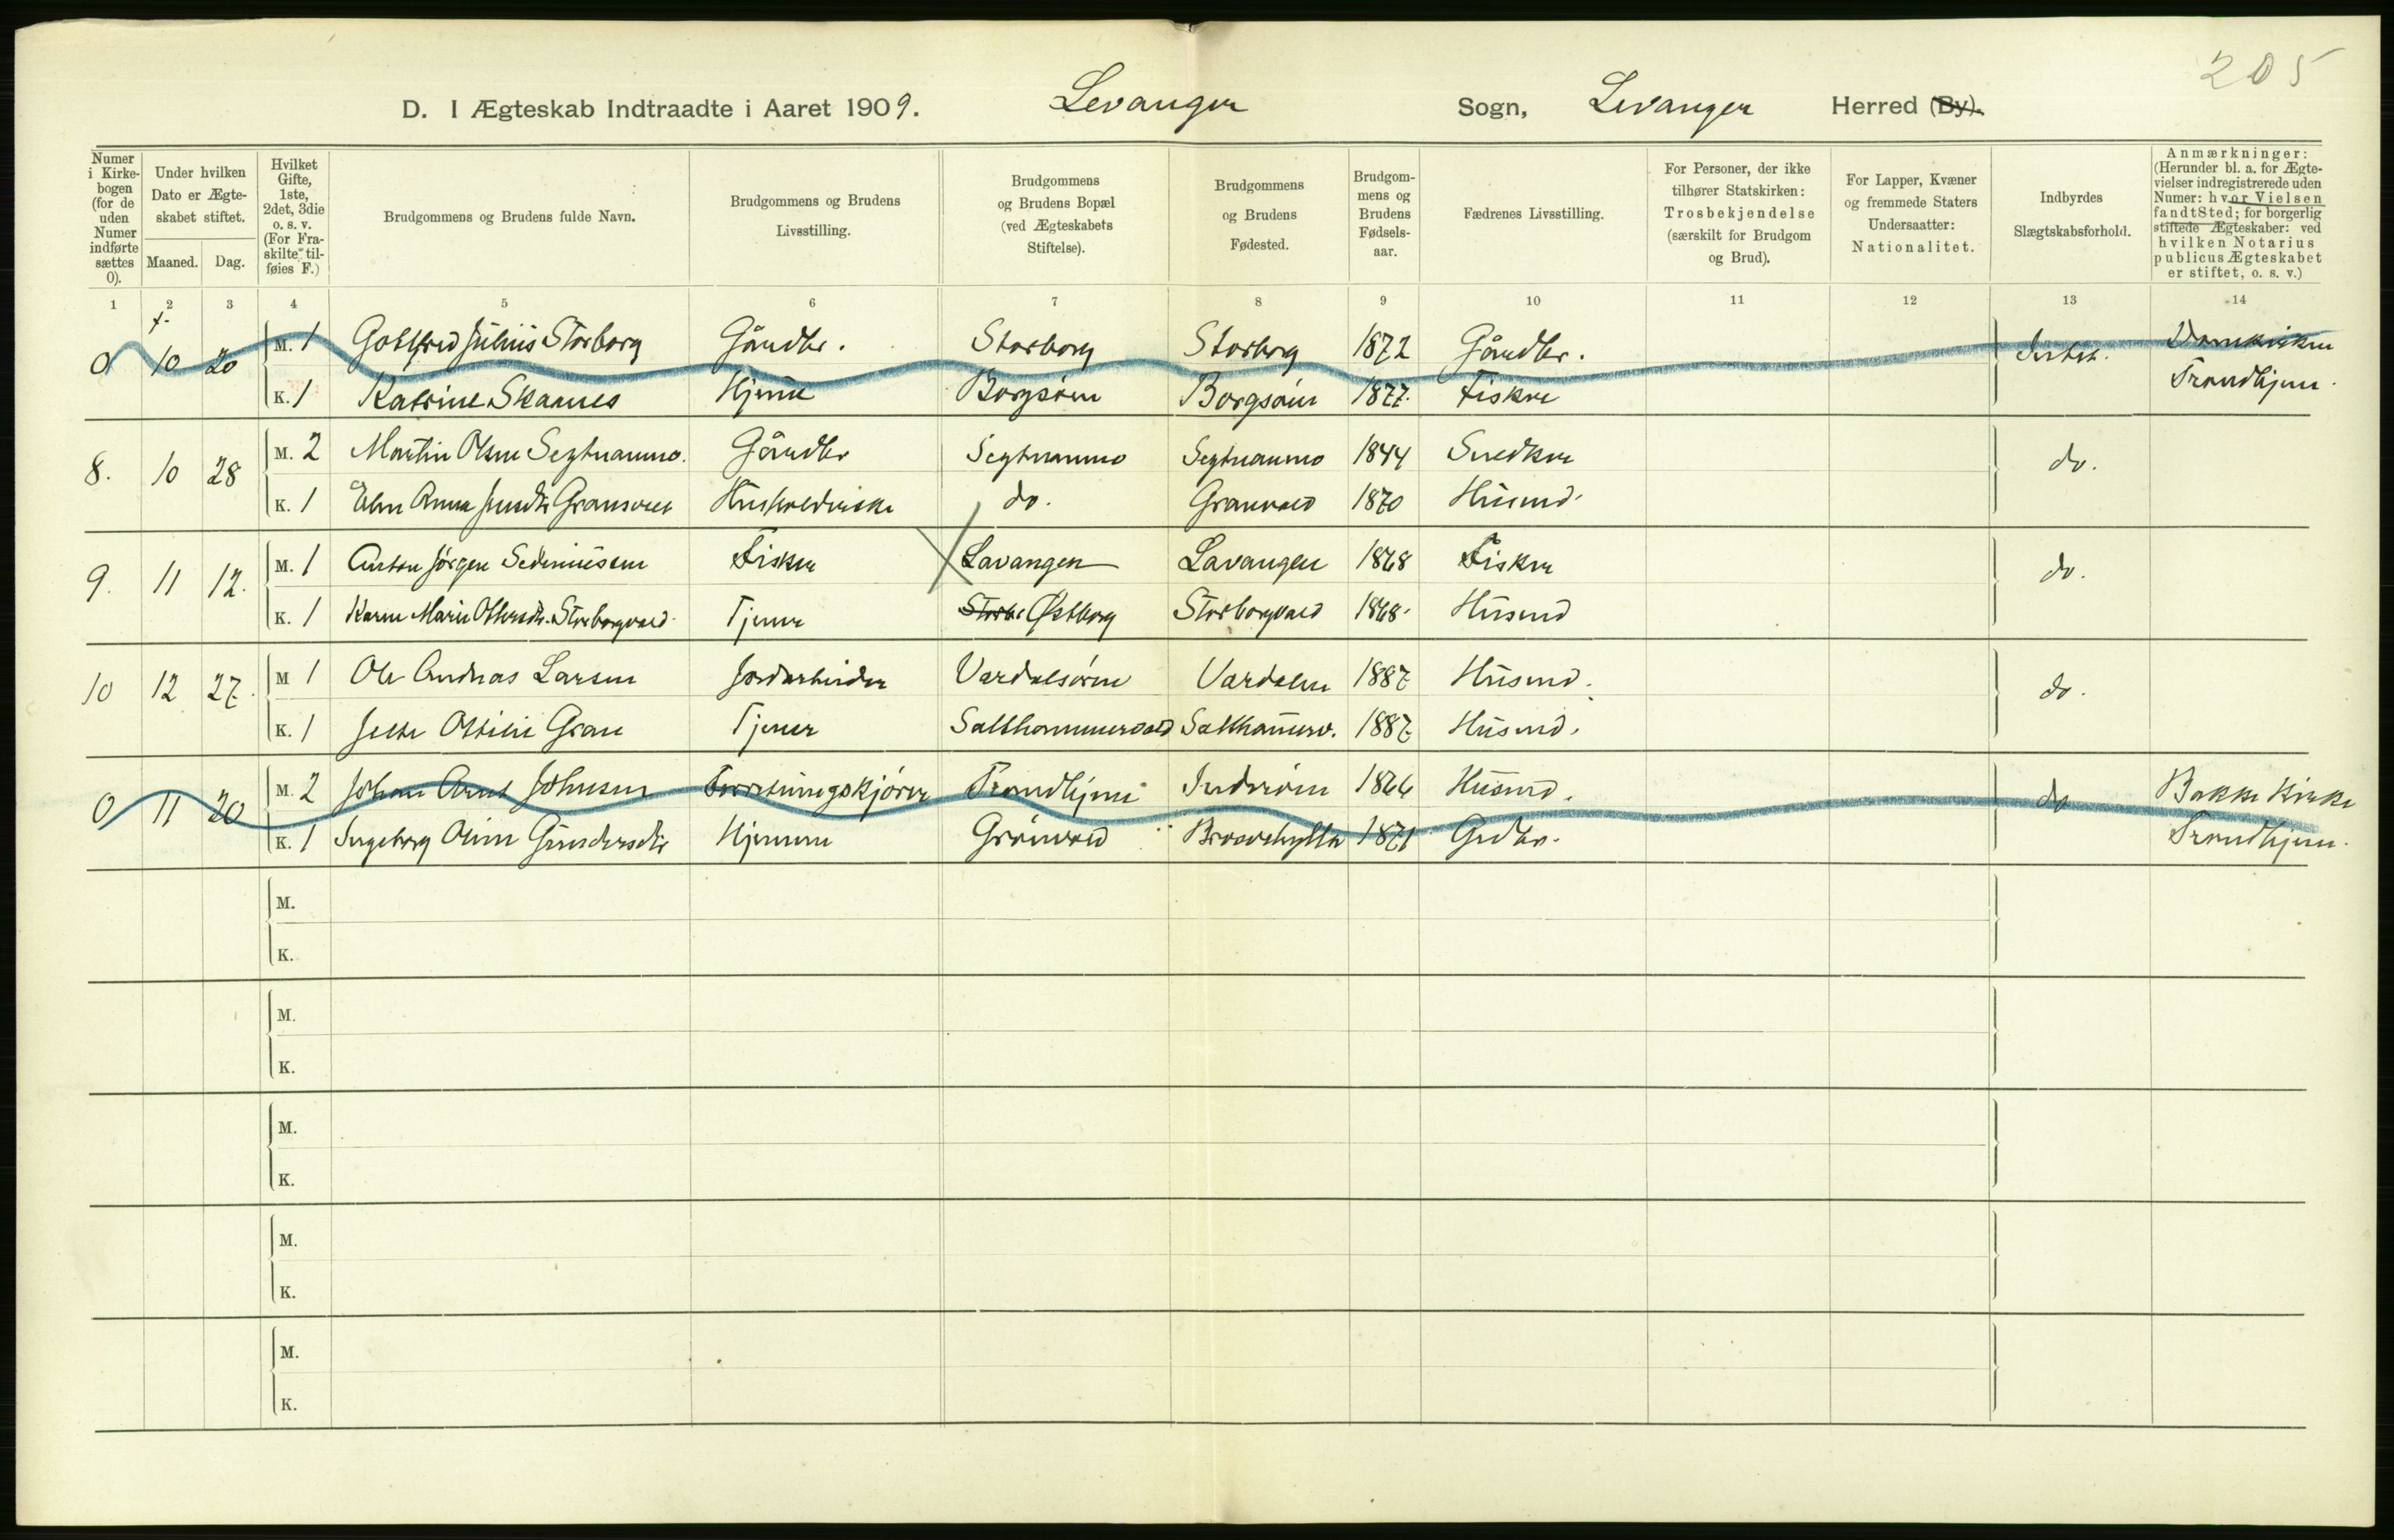 205
D. I Ægteskab Indtraadte i Aaret 1909. Levanger Sogn, Levanger Herred (By).
Numer i Kirkebogen (for de uden Numer indførte sættes 0).
Under hvilken Dato er Ægteskabet stiftet.
Maaned. Dag.
Hvilket Gifte, 1ste, 2det, 3die o. s. v. (For Fraskilte tilføies F.)
Brudgommens og Brudens fulde Navn.
Brudgommens og Brudens Livsstilling.
Brudgommens og Brudens Bopæl (ved Ægteskabets Stiftelse).
Brudgommens og Brudens Fødested.
Brudgommens og Brudens Fødselsaar.
Fædrenes Livsstilling.
For Personer, der ikke tilhører Statskirken: Trosbekjendelse (særskilt for Brudgom og Brud).
For Lapper, Kvæner og fremmede Staters Undersaatter: Nationalitet.
Indbyrdes Slægtskabsforhold.
Anmærkninger: (Herunder bl. a. for Ægtevielser indregistrerede uden Numer: hvor Vielsen fandt Sted; for borgerlig stiftede Ægteskaber: ved hvilken Notarius publicus Ægteskabet er stiftet, o. s. v.)
1 2 3 4 5 6 7 8 9 10 11 12 13 14
0 10 20 M. 1 Gottfred Julius Storborg Gårdbr. Storborg Storborg 1872 Gårdbr. Intet. Domkirken
K. 1 Katrine Skaanes Hjemme Borgsøen Borgsøen 1877. Fisker Trondhjem.
8. 10 28 M. 2 Martin Olsen Segtnanmo. Gårdbr Segtnanmo Segtnanmo 1844 Snedker do.
K. 1 Elen Anna Granvold Husholderske do. Granvold 1870 Husmd.
9. 11 12. M. 1 Anton Jørgen Sedeniusen Fisker Lavangen Lavangen 1868 Fisker do.
K. 1 Karen Marie Ottersdtr. Storborgvald. Tjener Østborg Storborgvald 1868. Husmd
10 12 27. M 1 Ole Andreas Larsen Jordarbeider Værdalsøren Værdalen 1887 Husmd. do.
K. 1 Ottilie Gran Tjener Salthammervald Salthamerv. 1887 Husmd.
0 11 20 M. 2 Johan Arnt Johnsen Forretningskjører Trondhjem Inderøen 1866 Husmd. do Bakke Kirke
K. 1 Ingeborg Gundersdtr Hjemme Grønvold 1871 Grdbr. Trondhjem.
M.
K.
M.
K.
M.
K.
M.
K.
M.
K.